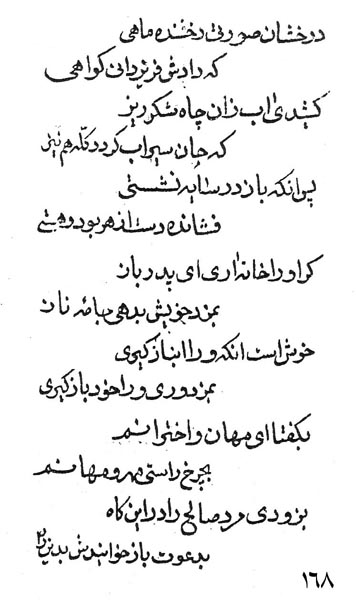 درخشان صورتی رخشنده ماهی
که دادش فر یزدانی کواهی
کشیدی اب زان چاه شکرریز
که جان سیراب کردد کله هم نیز
پس انکه باز در سایه نشستی
فشانده دست از هر بود و هستی
کرا و را خانه اری ای پدر باز
بمزد خویش بدهی جامه نان
خوش است انکه ورا انباز کیری
بمزدوری ورا خود باز کیری
بکفتا ای مهان و اخترانم
بچرخ راستی مهر و مهانم
بزودی مرد صالح را در این کاه
بدعوت باز خوانیدش بدین
١٦٨